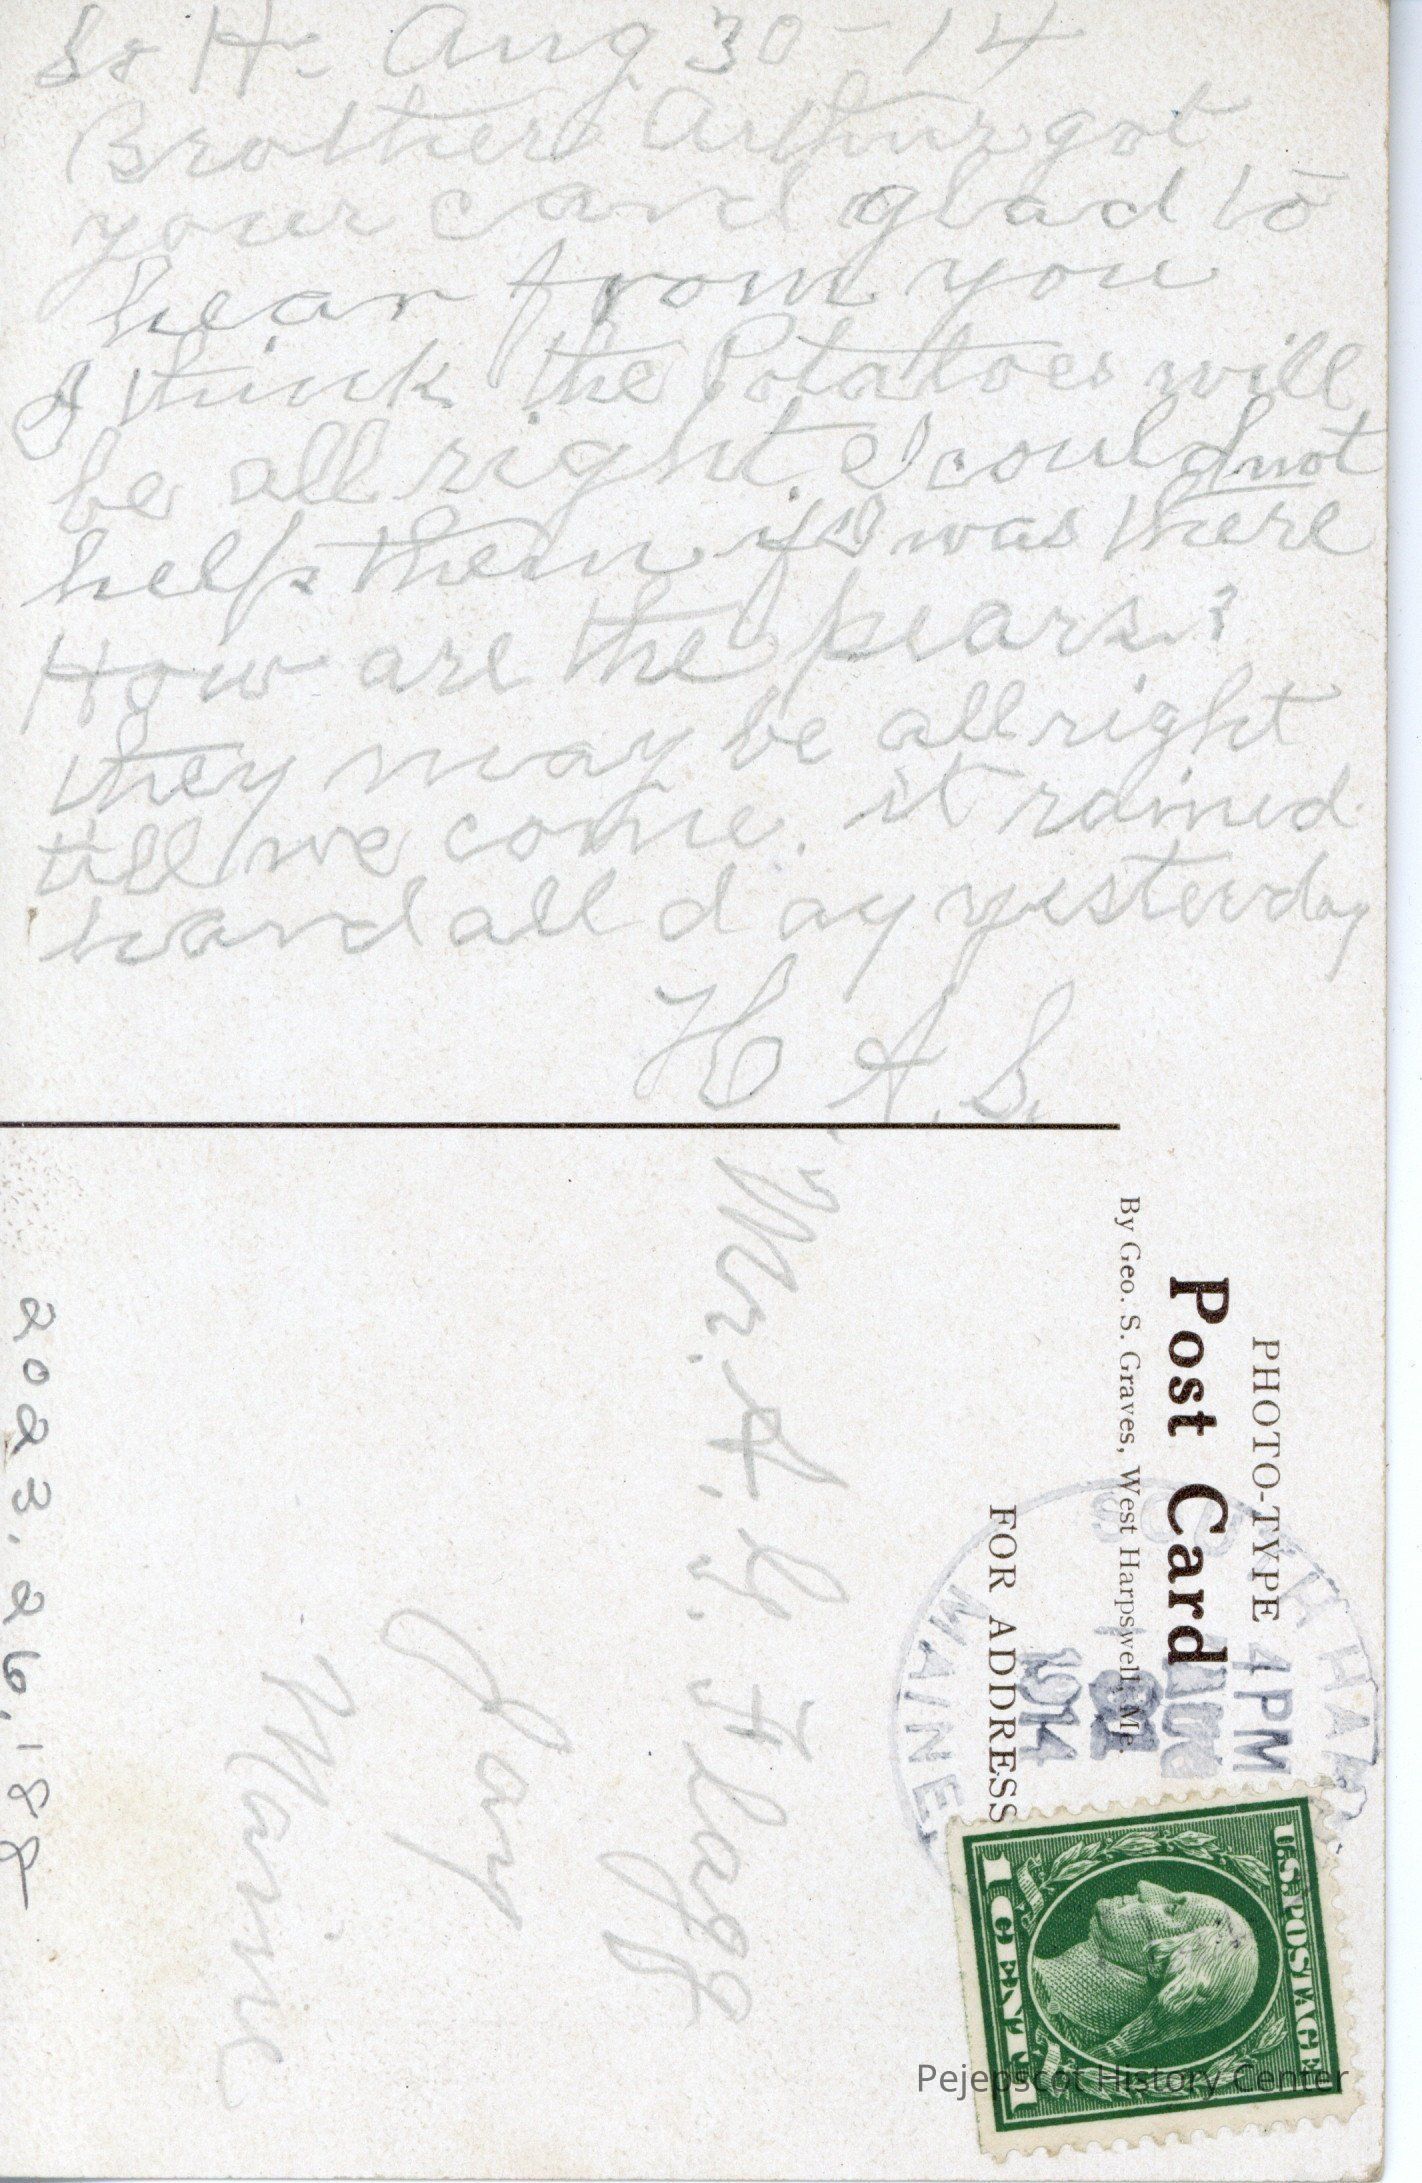 So H. Aug 30-14
Brother Arthur got
your card glad to
hear from you
I think the Potatoes will
be all right I could not
help them if I was there
How are the pears?
they may be all right
till we come. it rained
hard all day yesterday
H A. S.
PHOTO-TYPE
Post Card
By Geo. S. Graves, West Harpswell, Me.
FOR ADDRESS
4 PM
AUG
1914
MAINE
U.S. POSTAGE
1 CENT 1
Mr. A. G. Flagg
Jay
Maine
2023.26.188
Pejepscot History Center